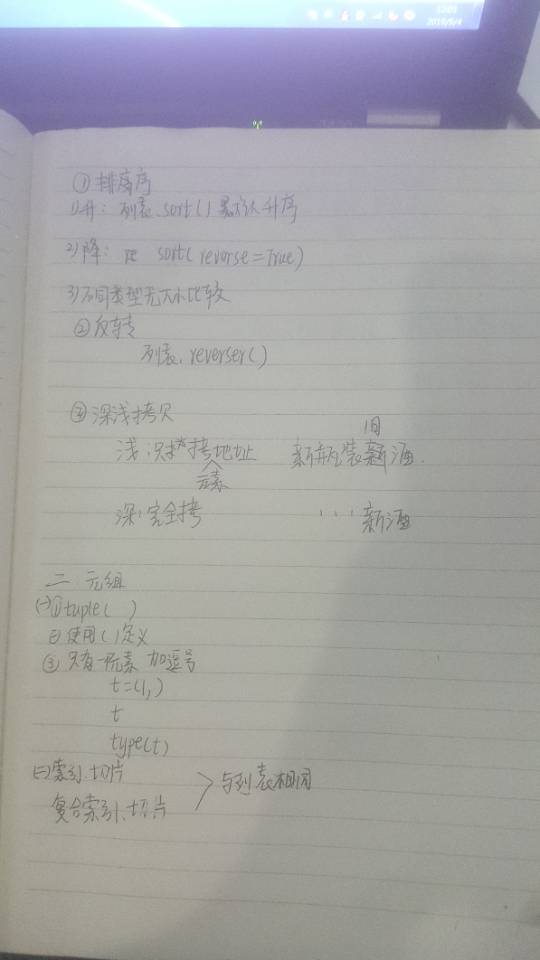 2019/6/4
① 排序
1)升: 列表.sort() 默认升序
2)降: sort(reverse=True)
3)不同类型无大小比较
②反转
列表.reverser()
③深浅拷贝
浅:只拷地址 新瓶装旧酒.
元素
深:完全拷 ... 新酒
二. 元组
(一)①tuple( )
②使用( )定义
③ 只有一元素 加逗号
t=(1,)
t
type(t)
(二)索引.切片
复合索引.切片 > 与列表相同